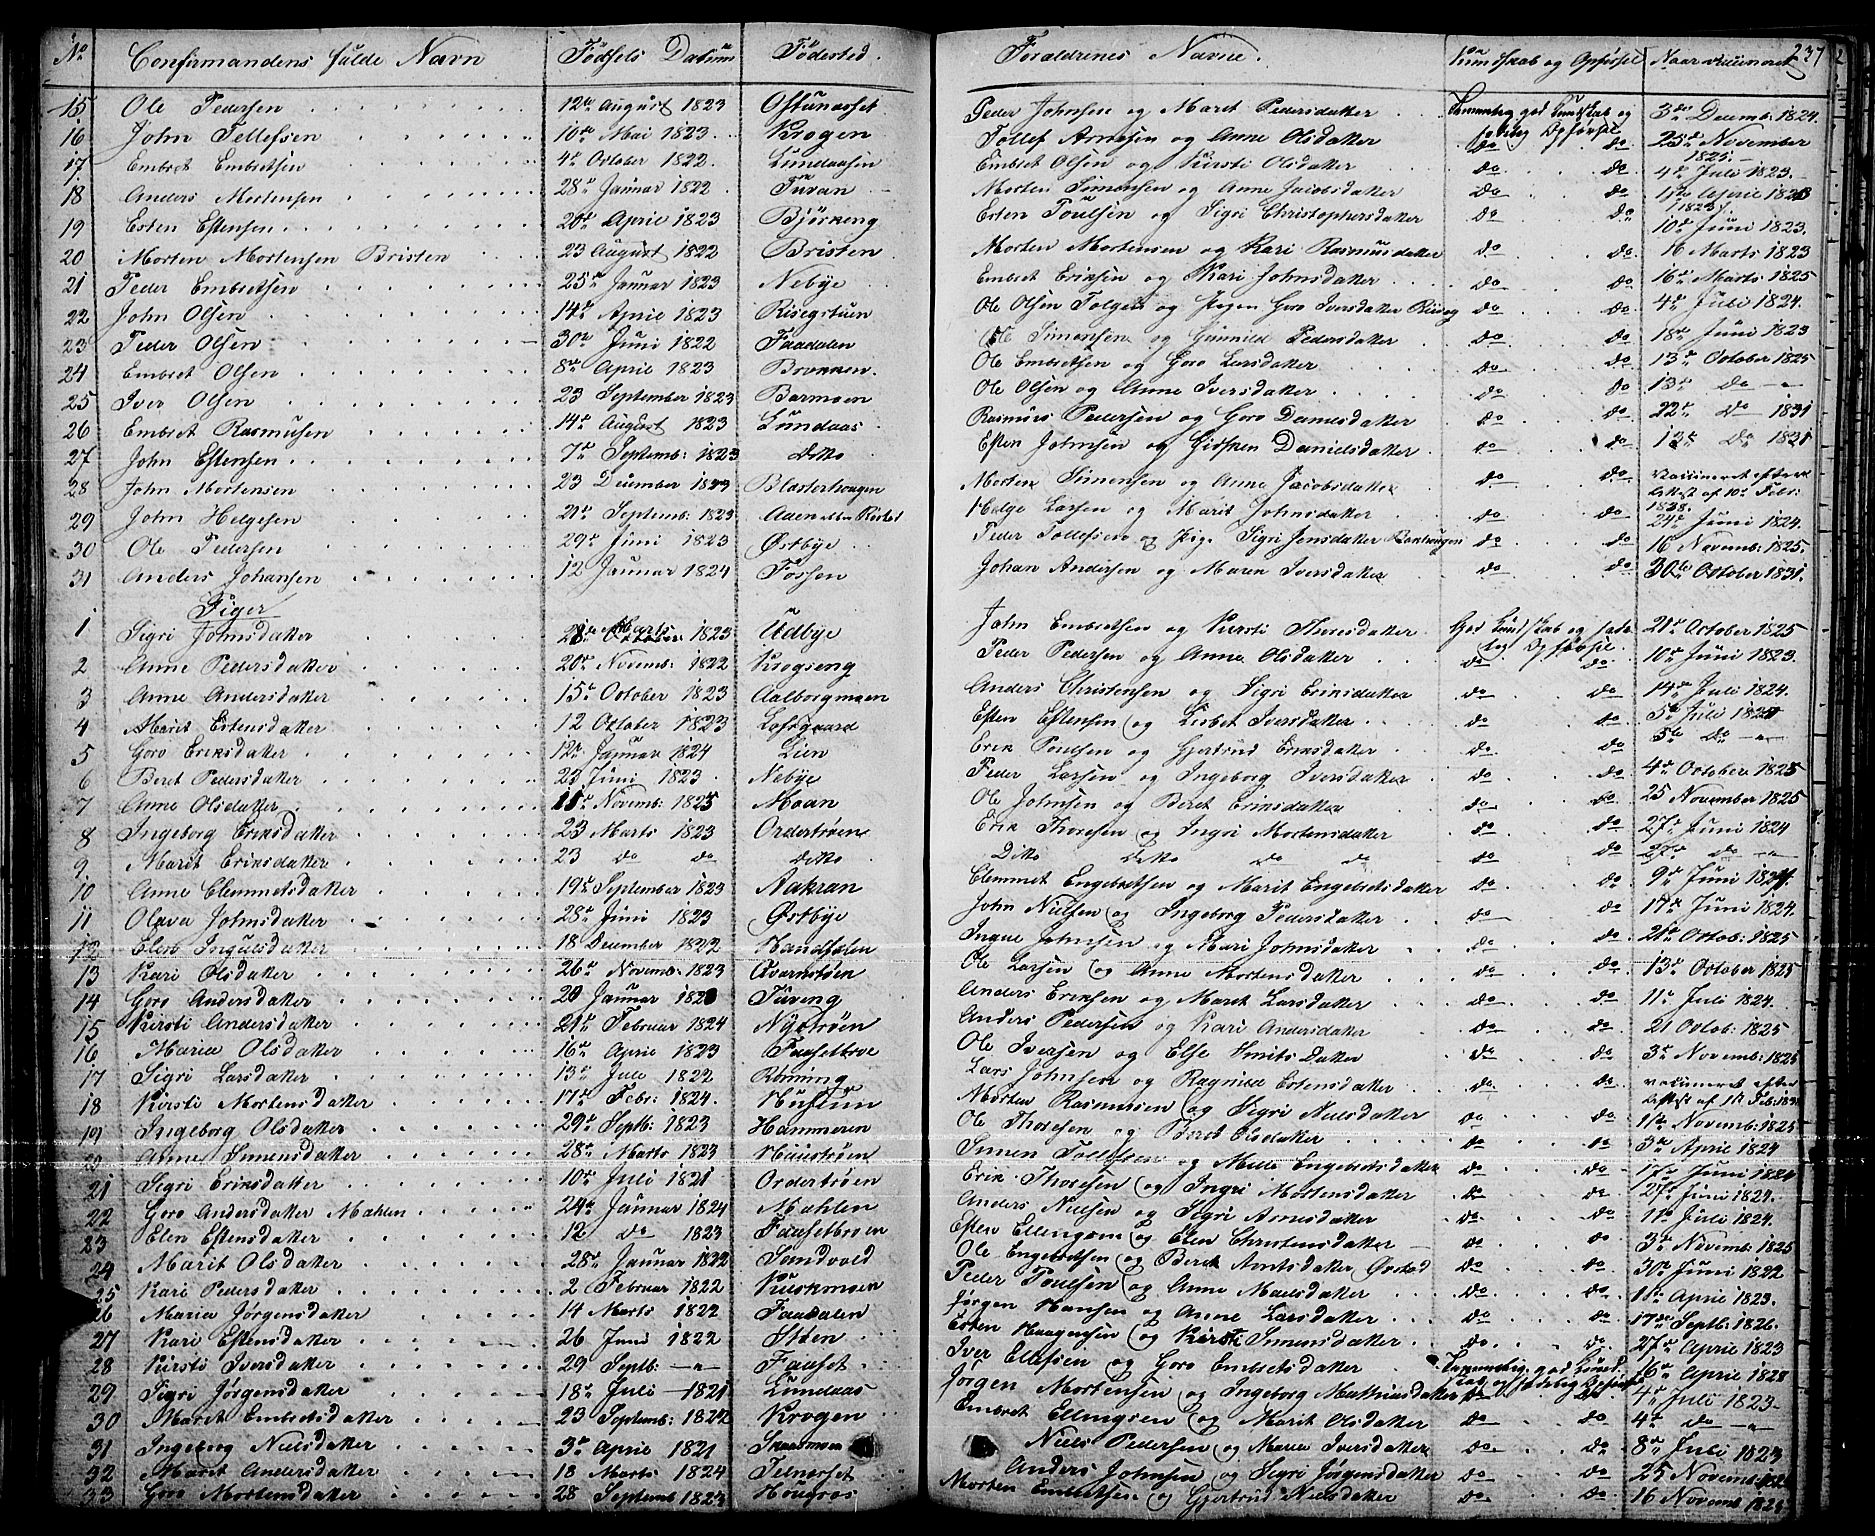 No Confirmandens fulde Navn Fødsels Datum Fødested. Forældrenes Navne. Kundskab og Opførsel Naar vaccineret 237
15 Ole Pedersen 12te August 1823 Peder Johnsen og Marit Pedersdatter Temmelig god Kundskab og 3die Decemb: 1824.
16 John Tollefsen 10de Mai 1823. Krogen Tollef Arnesen og Anne Olsdatter sædelig Opførsel do 25de November 1825.
17 Embret Embretsen 4de October 1822. Lundaasen Embret Olsen og Kirsti Olsdatter do do 4de Juli 1823.
18 Anders Mortensen 28de Januar 1822 Tüvan Morten Simensen og Anne Jacobsdatter do do
19 Esten Estensen 20de April 1823 Bjørkeng Esten Poulsen og Sigri Christophersdatter do do 10de Juni 1823.
20 Morten Mortensen Bristen 23 August 1822 Bristen Morten Mortensen og Kari Rasmusdatter do do 16 Marts 1823
21 Peder Embretsen 25de Januar 1823 Nebye Embret Eriksen og Kari Johnsdatter do do 16de Marts 1825
22 John Olsen 14de April 1823 Risegstuen Ole Olsen Tolgen og Pigen Goro Iversdatter do do 4de Juli 1824.
23 Peder Olsen 30te Juni 1822 Faadalen Ole Simensen og Gunnild Pedersdatter do do 18de Juni 1823
24 Embret Olsen 8de April 1823 Brennen. Ole Embretsen og Goro Larsdatter do do 13de October 1825
25 Iver Olsen 23 September 1823 Barmoen Ole Olsen og Anne Iversdatter do do 13de do
26 Embret Rasmusen 14de August 1823 Lundaas Rasmus Pedersen og Goro Danielsdatter do do 22de do 1831
27 John Estensen 7de Septemb: 1823 ditto Esten Johnsen og Gisken Danielsdatter do do 12te do 1831
28 John Mortensen 23 December 1823 Blesterhougen Morten Simensen og Anne Jacobsdatter do do vaccineret efter Attest af 10de Febr: 1838.
29 John Helgesen 21de Septemb: 1823 Helge Larsen og Marit Johnsdatter do do 24de Juni 1824.
30 Ole Pedersen 29de Juni 1823 Østbye Peder Tollefsen og Pige Sigri Jensdatter do do 16 Novemb: 1825.
31 Anders Johansen 12 Januar 1824 Tossen Johan Andersen og Maren Iversdatter do do 30te October 1831.
Piger
1 Sigri Johnsdatter 21de Marts 1823 Udbye John Embretsen og Kirsti Thoresdatter God Kundskab og sæde- 21de October 1825
2 Anne Pedersdatter 20de Novemb: 1822 Krogseng Peder Pedersen og Anne Olsdatter lig Opførsel do do 10de Juni 1823.
3 Anne Andersdatter 15de October 1823 Aalborgmoen Anders Christensen og Sigri Eriksdatter do do 14de Juli 1824.
4 Marit Estensdatter 12 October 1823 Lofsgaard Esten Estensen og Lisbet Iversdatter do do 5te Juli
5 Goro Eriksdatter 12te Januar 1824 Lien Erik Poulsen og Gjertrud Eriksdatter do do 5te do
6 Beret Pedersdatter 23 Juni 1823. Nebye Peder Larsen og Ingeborg Iversdatter do do 4de October 1825
7 Anne Olsdatter Novemb: 1825 Moan Ole Johnsen og Beret Eriksdatter do do 25 November 1825
8 Ingeborg Eriksdatter 23 Marts 1823 Orderstrøen Erik Thoresen og Ingri Mortensdatter do do 27de Juni 1824
9 Marit Eriksdatter 23 do do ditto Ditto ditto do do do do 27de do
10 Anne Clemmetsdatter 19de September 1823 Aakran Clemmet Engebretsen og Marit Engebretsdatter do do 9de Juni 1824.
11 Olava Johnsdatter 28de Juni 1823 Østbye John Nielsen og Ingeborg Pedersdatter do do 17de Juni 1824.
12 18 December 1822 Johnsen og Mari Johnsdatter do do 21de Octob: 1825
13 Kari Olsdatter 26de Novemb: 1823 Qvernstøen Ole Larsen og Anne Mortensdatter do do 13de October 1825
14 Goro Andersdatter 20 Januar 1823 Tüveng Anders Eriksen og Maret Larsdatter do do 11te Juli 1824.
15 Kirsti Andersdatter 21de Februar 1824 Nystrøen Anders Pedersen og Kari Andersdatter do do 21 Octob: 1825
16 Maria Olsdatter 16de April 1823 Faasetbroe Ole Iversen og Else Smitsdatter do do 3de Novemb: 1825
17 Sigri Larsdatter 13de Juli 1822 Lars Johnsen og Ragnild Estensdatter do do vaccineret efter
18 Kirsti Mortensdatter 17de Febr: 1824. Husum Morten Rasmusen og Sigri Nielsdatter
19 Ingeborg Olsdatter 29de Septb: 1823 Hammeren Ole Thoresen og Beret Olsdatter do do 11te Novemb: 1825
Anne Simensdatter 28de Marts 1823 Simen Tollefsen og Engebretsdatter do do 3de April 1824
21 Sigri Eriksdatter 10de Juli 1821 Orderstrøen Erik Thoresen og Ingri Mortensdatter do do 27de Juni 1824.
22 Goro Andersdatter Mahlen 24de Januar 1824 Mahlen Anders Nielsen og Sigri Arnesdatter do do 11te Juli 1824.
23 Elen Estensdatter 12 do 1823 Faasetbroen Esten Ellingsen og Elen Christensdatter do do 3de Novemb: 1825
24 Marit Olsdatter 28de Januar 1822 Sandvold Ole Engebretsen og Beret do do 30te Juni 1822
25 Kari Pedersdatter 2 Februar 1822 Peder Poulsen og Anne do do 11te April 1823.
26 Maria Jørgensdatter 14 Marts 1822 Faadalen Jørgen Hansen og Anne Larsdatter do do 17de Septb: 1826.
27 Kari Estensdatter 26 Juni 1822 Støen Esten Haagensen og Kirsti Simensdatter do do 27de April 1823
28 Kirsti Iversdatter 29 Septb: Faaset Iver Ellefsen og Goro Embretsdatter Temmelig god Kund- 16de April 1828
29 Sigri Jørgensdatter 18de Juli 1821 Lundaas Jørgen Mortensen og Ingeborg Mathiasdatter 4de Juli 1823
30 Maret Embretsdatter 23 Septemb: 1822 Krogen Embret Ellingsen og Marit Olsdatter do do 4de do
31 Ingeborg Nielsdatter 3de April 1821 Niels Pedersen og Maria Iversdatter do do 8de Juli 1823
32 Marit Andersdatter 18 Marts 1824 Telneset Anders Johnsen og Sigri Jørgensdatter do do 25 Novemb:
33 Goro Mortensdatter 28 Septemb 1823 Morten Embretsen og Gjertrud Nielsdatter do do 16 Novemb 1824.